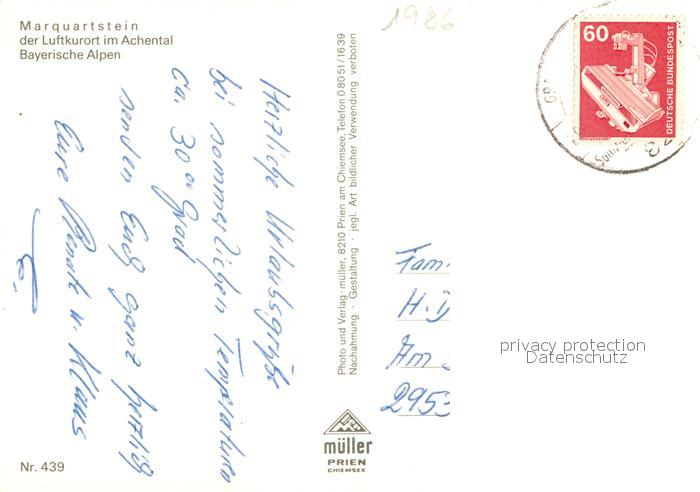 Marquartstein
der Luftkurort im Achental
Bayerische Alpen
1986
60
DEUTSCHE BUNDESPOST
Herzliche Urlaubsgrüße
bei sommerlichen Temperaturen
ca. 30° Grad
senden Euch ganz herzlich
Eure Renate u. Klaus
Photo und Verlag · müller, 8210 Prien am Chiemsee, Telefon 08051/1639
Nachahmung · Gestaltung · jegl. Art bildlicher Verwendung verboten
Fam.
H. D
Am
2953
privacy protection
Datenschutz
müller
PRIEN
CHIEMSEE
Nr. 439